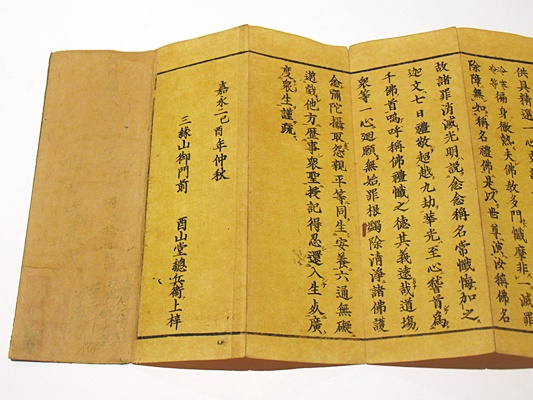 供具精選一心
除障無如稱名禮佛是以世尊演汝稱佛名
故諸罪消滅光明說念念稱名常懺悔加之
迦文七日禮敬超越九劫華光至心稽首爲
千佛首嗚呼稱佛禮懺之德其義遠哉道場
衆等一心廻願無始罪根蠲除清淨諸佛護
念彌陀攝取怨親平等同生安養六通無礙
遊戲他方歷事衆聖授記得忍還入生死廣
度衆生謹疏
嘉永二己酉年仲秋
三緣山御門前 酉山堂總兵衛上梓